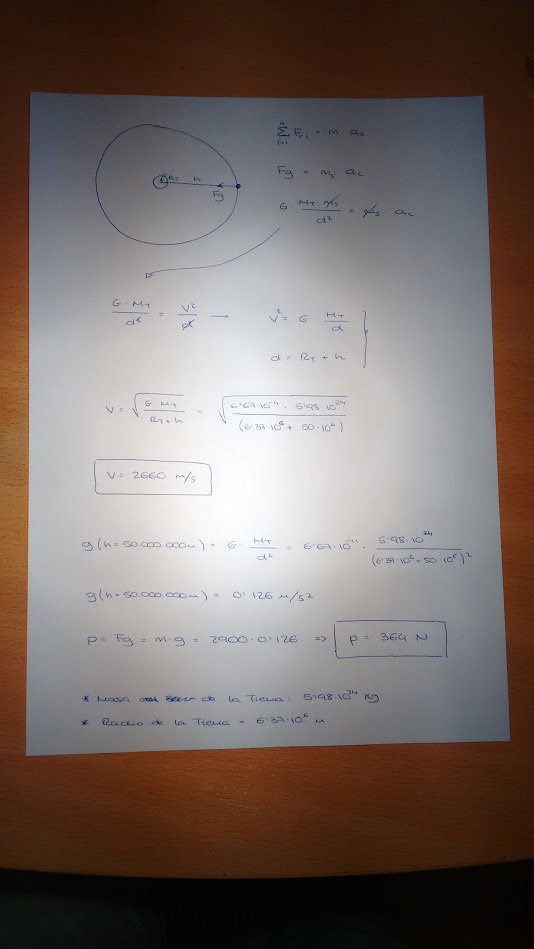 R_T h
Fg
n Σ i=1 F_r i = m · a_c
Fg = m_s a_c
G M_T · m_s / d² = m_s · a_c
G · M_T / d² = V² / d → V² = G · M_T / d
d = R_T + h
V = √(G M_T / R_T + h) = √(6'67·10⁻¹¹ · 5'98·10²⁴ / (6'37·10⁶ + 50·10⁶))
V = 2660 m/s
g(h = 50.000.000m) = G · M_T / d² = 6'67·10⁻¹¹ · 5'98·10²⁴ / (6'37·10⁶ + 50·10⁶)²
g(h = 50.000.000m) = 0'126 m/s²
P = Fg = m·g = 2900·0'126 ⇒ P = 364 N
* Masa de la Tierra: 5'98·10²⁴ Kg
* Radio de la Tierra = 6'37·10⁶ m